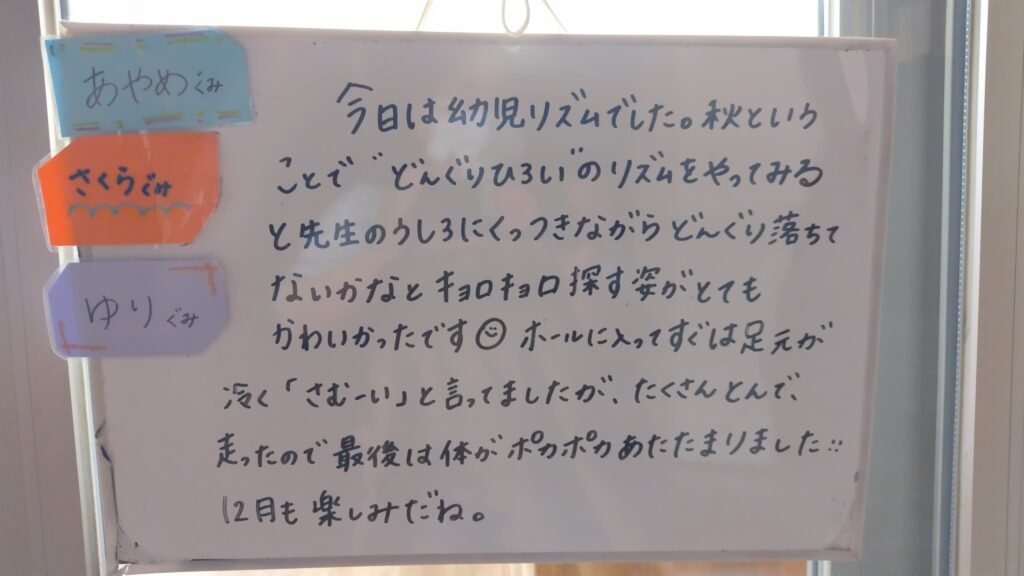 あやめぐみ
さくらぐみ
ゆりぐみ
今日は幼児リズムでした。秋という
ことで“どんぐりひろい”のリズムをやってみる
と先生のうしろにくっつきながらどんぐり落ちて
ないかなとキョロキョロ探す姿がとても
かわいかったです☺ ホールに入ってすぐは足元が
冷く「さむーい」と言ってましたが、たくさんとんで、
走ったので最後は体がポカポカあたたまりました!!
12月も楽しみだね。